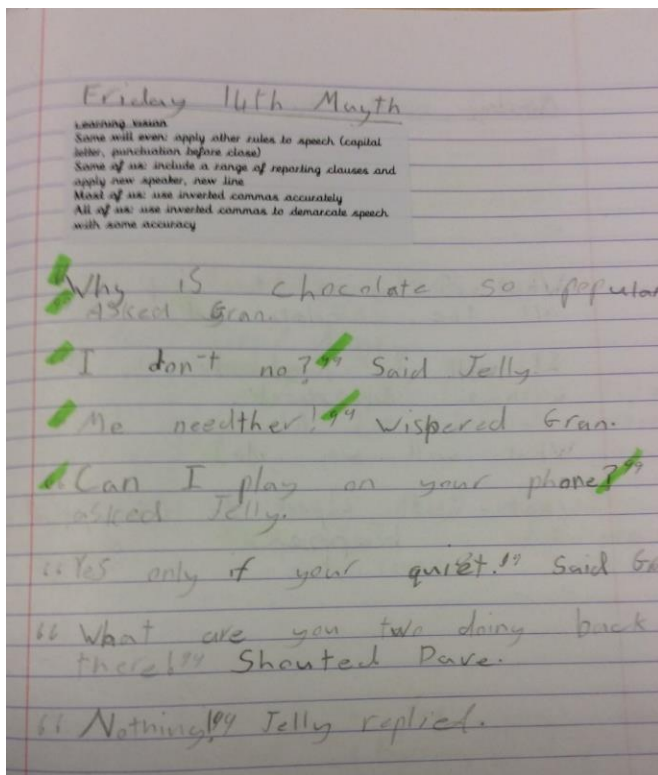 Friday 14th Mayth
Learning vision
Some will even: apply other rules to speech (capital
letter, punctuation before close)
Some of us: include a range of reporting clauses and
apply new speaker, new line
Most of us: use inverted commas accurately
All of us: use inverted commas to demarcate speech
with some accuracy
"Why is chocolate so popular
Asked Gran.
"I don't no?" Said Jelly.
"Me needther!" Wispered Gran.
"Can I play on your phone?"
asked Jelly.
"Yes only if your quiet." Said
"What are you two doing back
there!" Shouted Dave.
"Nothing!" Jelly replied.